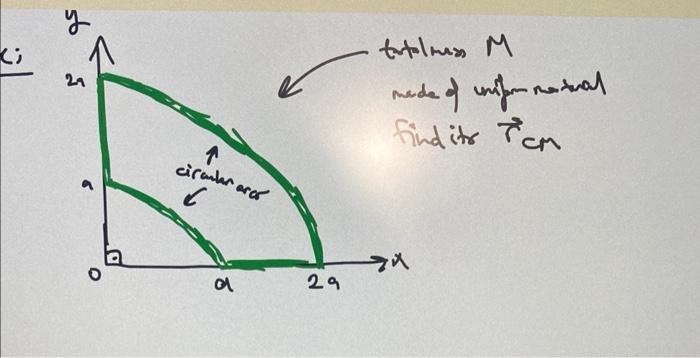 y
total mass M
2a
made of uniform material
find its r⃗cm
circular arcs
a
x
0
a
2a